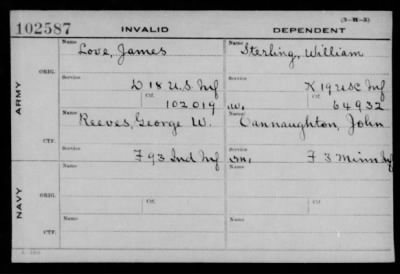 (3-H-3)
102587 INVALID DEPENDENT
Name Love, James Name Sterling, William
ORIG.
Service D 18 U.S. Inf Service K 19 USC Inf
Ctf. 102019 W. Ctf. 64932
ARMY
Name Reeves, George W. Name Cannaughton, John
CTF.
Service F 93 Ind Inf Service F 3 Minn
Name Name
ORIG.
Service Ctf. Service Ctf.
NAVY
Name Name
CTF.